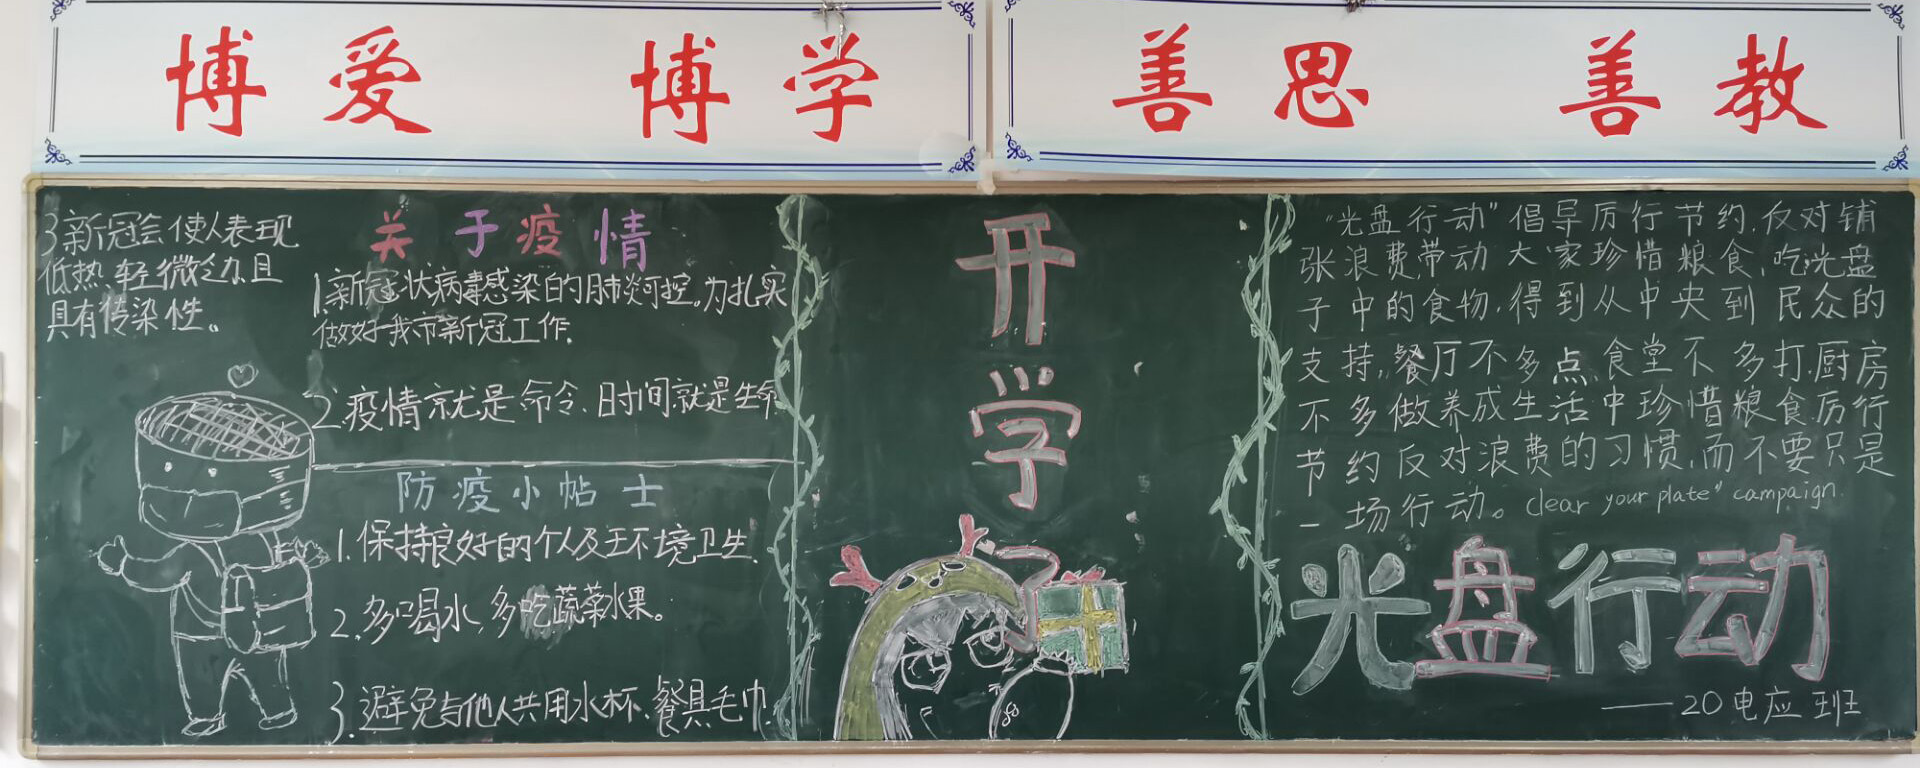 博爱 博学
善思 善教
关于疫情
1.新冠状病毒感染的肺炎可控。为扎实
做好我市新冠工作.
2.疫情就是命令、时间就是生命
3新冠会使人表现
低热、轻微乏力、且
具有传染性。
防疫小帖士
1.保持良好的个人及环境卫生.
2.多喝水,多吃蔬菜水果。
3.避免与他人共用水杯、餐具毛巾.
开学了
"光盘行动"倡导厉行节约,反对铺
张浪费,带动大家珍惜粮食,吃光盘
子中的食物,得到从中央到民众的
支持,餐厅不多点、食堂不多打,厨房
不多做养成生活中珍惜粮食厉行
节约反对浪费的习惯,而不要只是
一场行动。clear your plate" campaign.
光盘行动
——20电应班